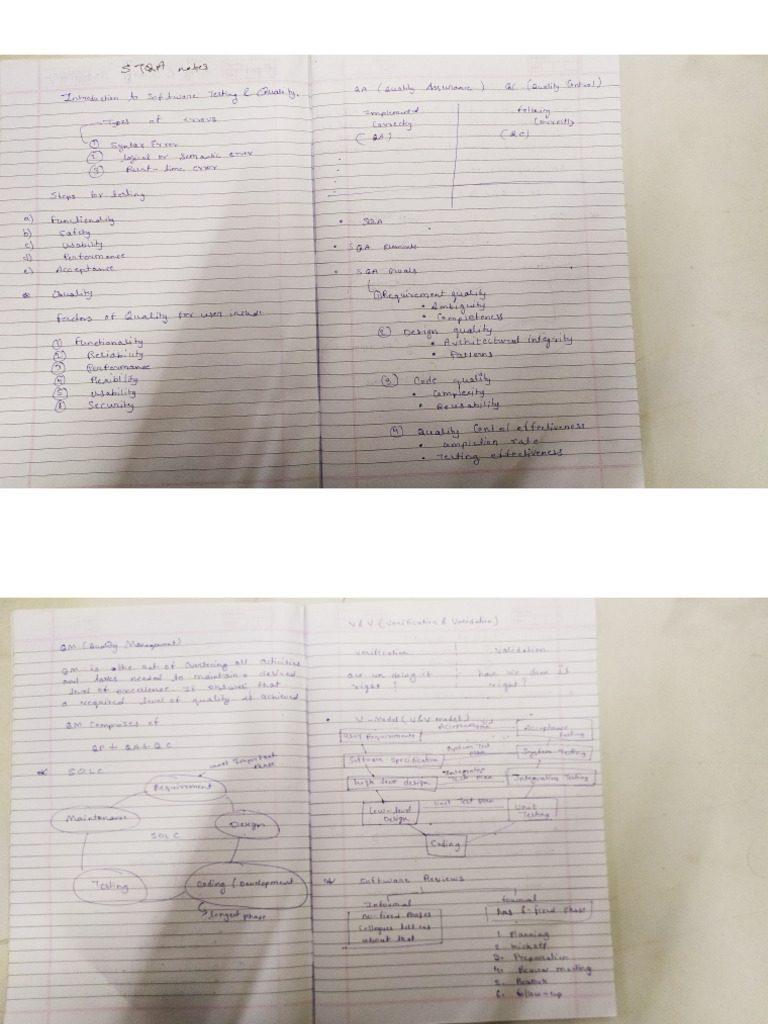 STQA notes
Introduction to Software Testing & Quality.
Types of errors
① Syntax Error
② logical or semantic error
③ Run-time error
Steps for testing
a) Functionality
b) Safety
c) Usability
d) Performance
e) Acceptance
Quality
Factors of Quality for user include
① Functionality
② Reliability
③ Performance
④
⑤ Usability
⑥ Security
QA (Quality Assurance) QC (Quality Control)
Implemented Following
Correctly Correctly
(QA) (QC)
• SQA
• SQA Elements
• SQA Goals
① Requirement quality
• Ambiguity
• Completeness
② Design quality
• Architectural integrity
• Patterns
③ Code quality
• Complexity
• Reusability
④ Quality Control effectiveness
• Completion rate
• Testing effectiveness
QM (Quality Management)
QM is the act of overseeing all activities
and tasks needed to maintain a desired
level of excellence. It ensures that
a required level of quality is achieved
QM Comprises of
QP + QA + QC
SDLC
most important
phase
Requirement
Maintenance
SDLC
Design
Testing
Coding / Development
longest phase
V & V (Verification & Validation)
Verification Validation
are we doing it how we done it
right? right?
• V-Model (V&V model)
User Requirements
Acceptance
Testing
Software Specification
System Test
Plan
System Testing
high level design
Integration
Test plan
Integration Testing
Low-level
Design
Unit Test plan
Unit
Testing
Coding
Software Reviews
Informal Formal
No-fixed Phases
about that
has 6-fixed phase
1. Planning
2. Kickoff
3. Preparation
4. Review meeting
5. Rework
6. Follow-up